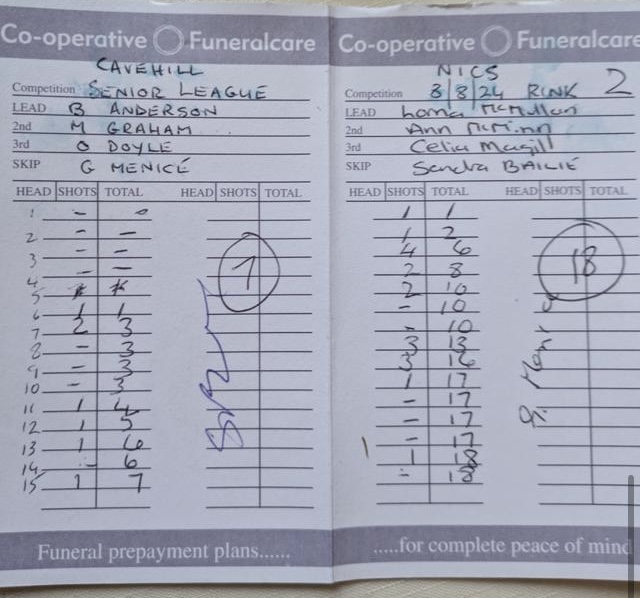 Co-operative Funeralcare
CAVEHILL
Competition SENIOR LEAGUE
LEAD B ANDERSON
2nd M GRAHAM
3rd O DOYLE
SKIP G MENICÉ
HEAD SHOTS TOTAL HEAD SHOTS TOTAL
1 - 0
2 - -
3 - -
4 - -
5
6 1 1
7 2 3
8 - 3
9 - 3
10 - 3
11 1 4
12 1 5
13 1 6
14 - 6
15 1 7
7
Funeral prepayment plans......
Co-operative Funeralcare
NICS
Competition 8/8/24 RINK 2
LEAD Lorna McMullan
2nd Ann McMinn
3rd Celia Magill
SKIP Sandra BAILIE
HEAD SHOTS TOTAL HEAD SHOTS TOTAL
1 1
1 2
4 6
2 8
2 10
- 10
- 10
3 13
3 16
1 17
- 17
- 17
- 17
1 18
- 18
18
.....for complete peace of mind